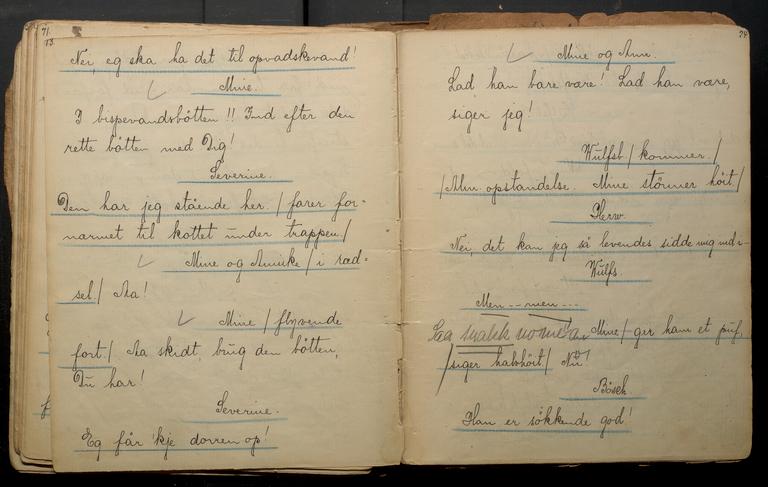 71.
73.
Nei, eg ska ha det til opvadskevand!
Mine.
I bispevandsbötten!! Ind efter den
rette bötten med Dig!
Severine.
Den har jeg stående her. / farer for-
narmet til kottet under trappen /
Mine og Annike / i ræd-
sel / Aa!
Mine / flyvende
fort / Aa skidt, brug den bötten,
Du har!
Severine.
Eg får 'kje dorren op!
74
Mine og Anne.
Lad ham bare være! Lad ham være,
siger jeg!
Wulfsb / kommer. /
/ Alm. opstandelse. Mine störmer höit /
Herw.
Nei, det kan jeg så levendes sidde mig ind i-
Wulfs.
Men --- men ---
Mine / ger ham et puf,
/ siger halvhöit / Nu
Bösch.
Han er sökkende god!